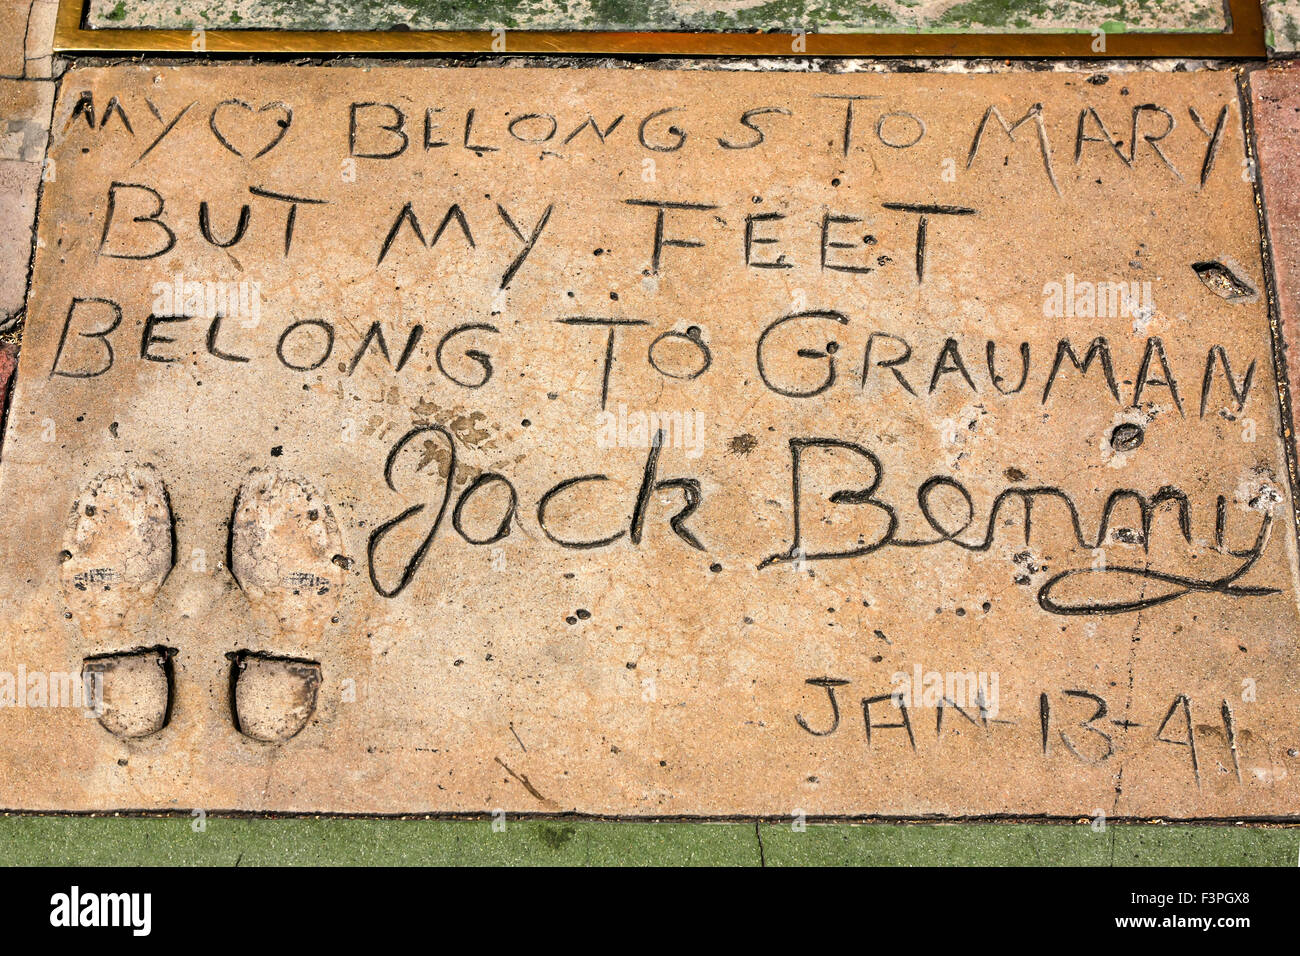 MY ♡ BELONGS TO MARY
BUT MY FEET
BELONG TO GRAUMAN
Jack Benny
JAN-13-41
alamy stock photo
F3PGX8
www.alamy.com